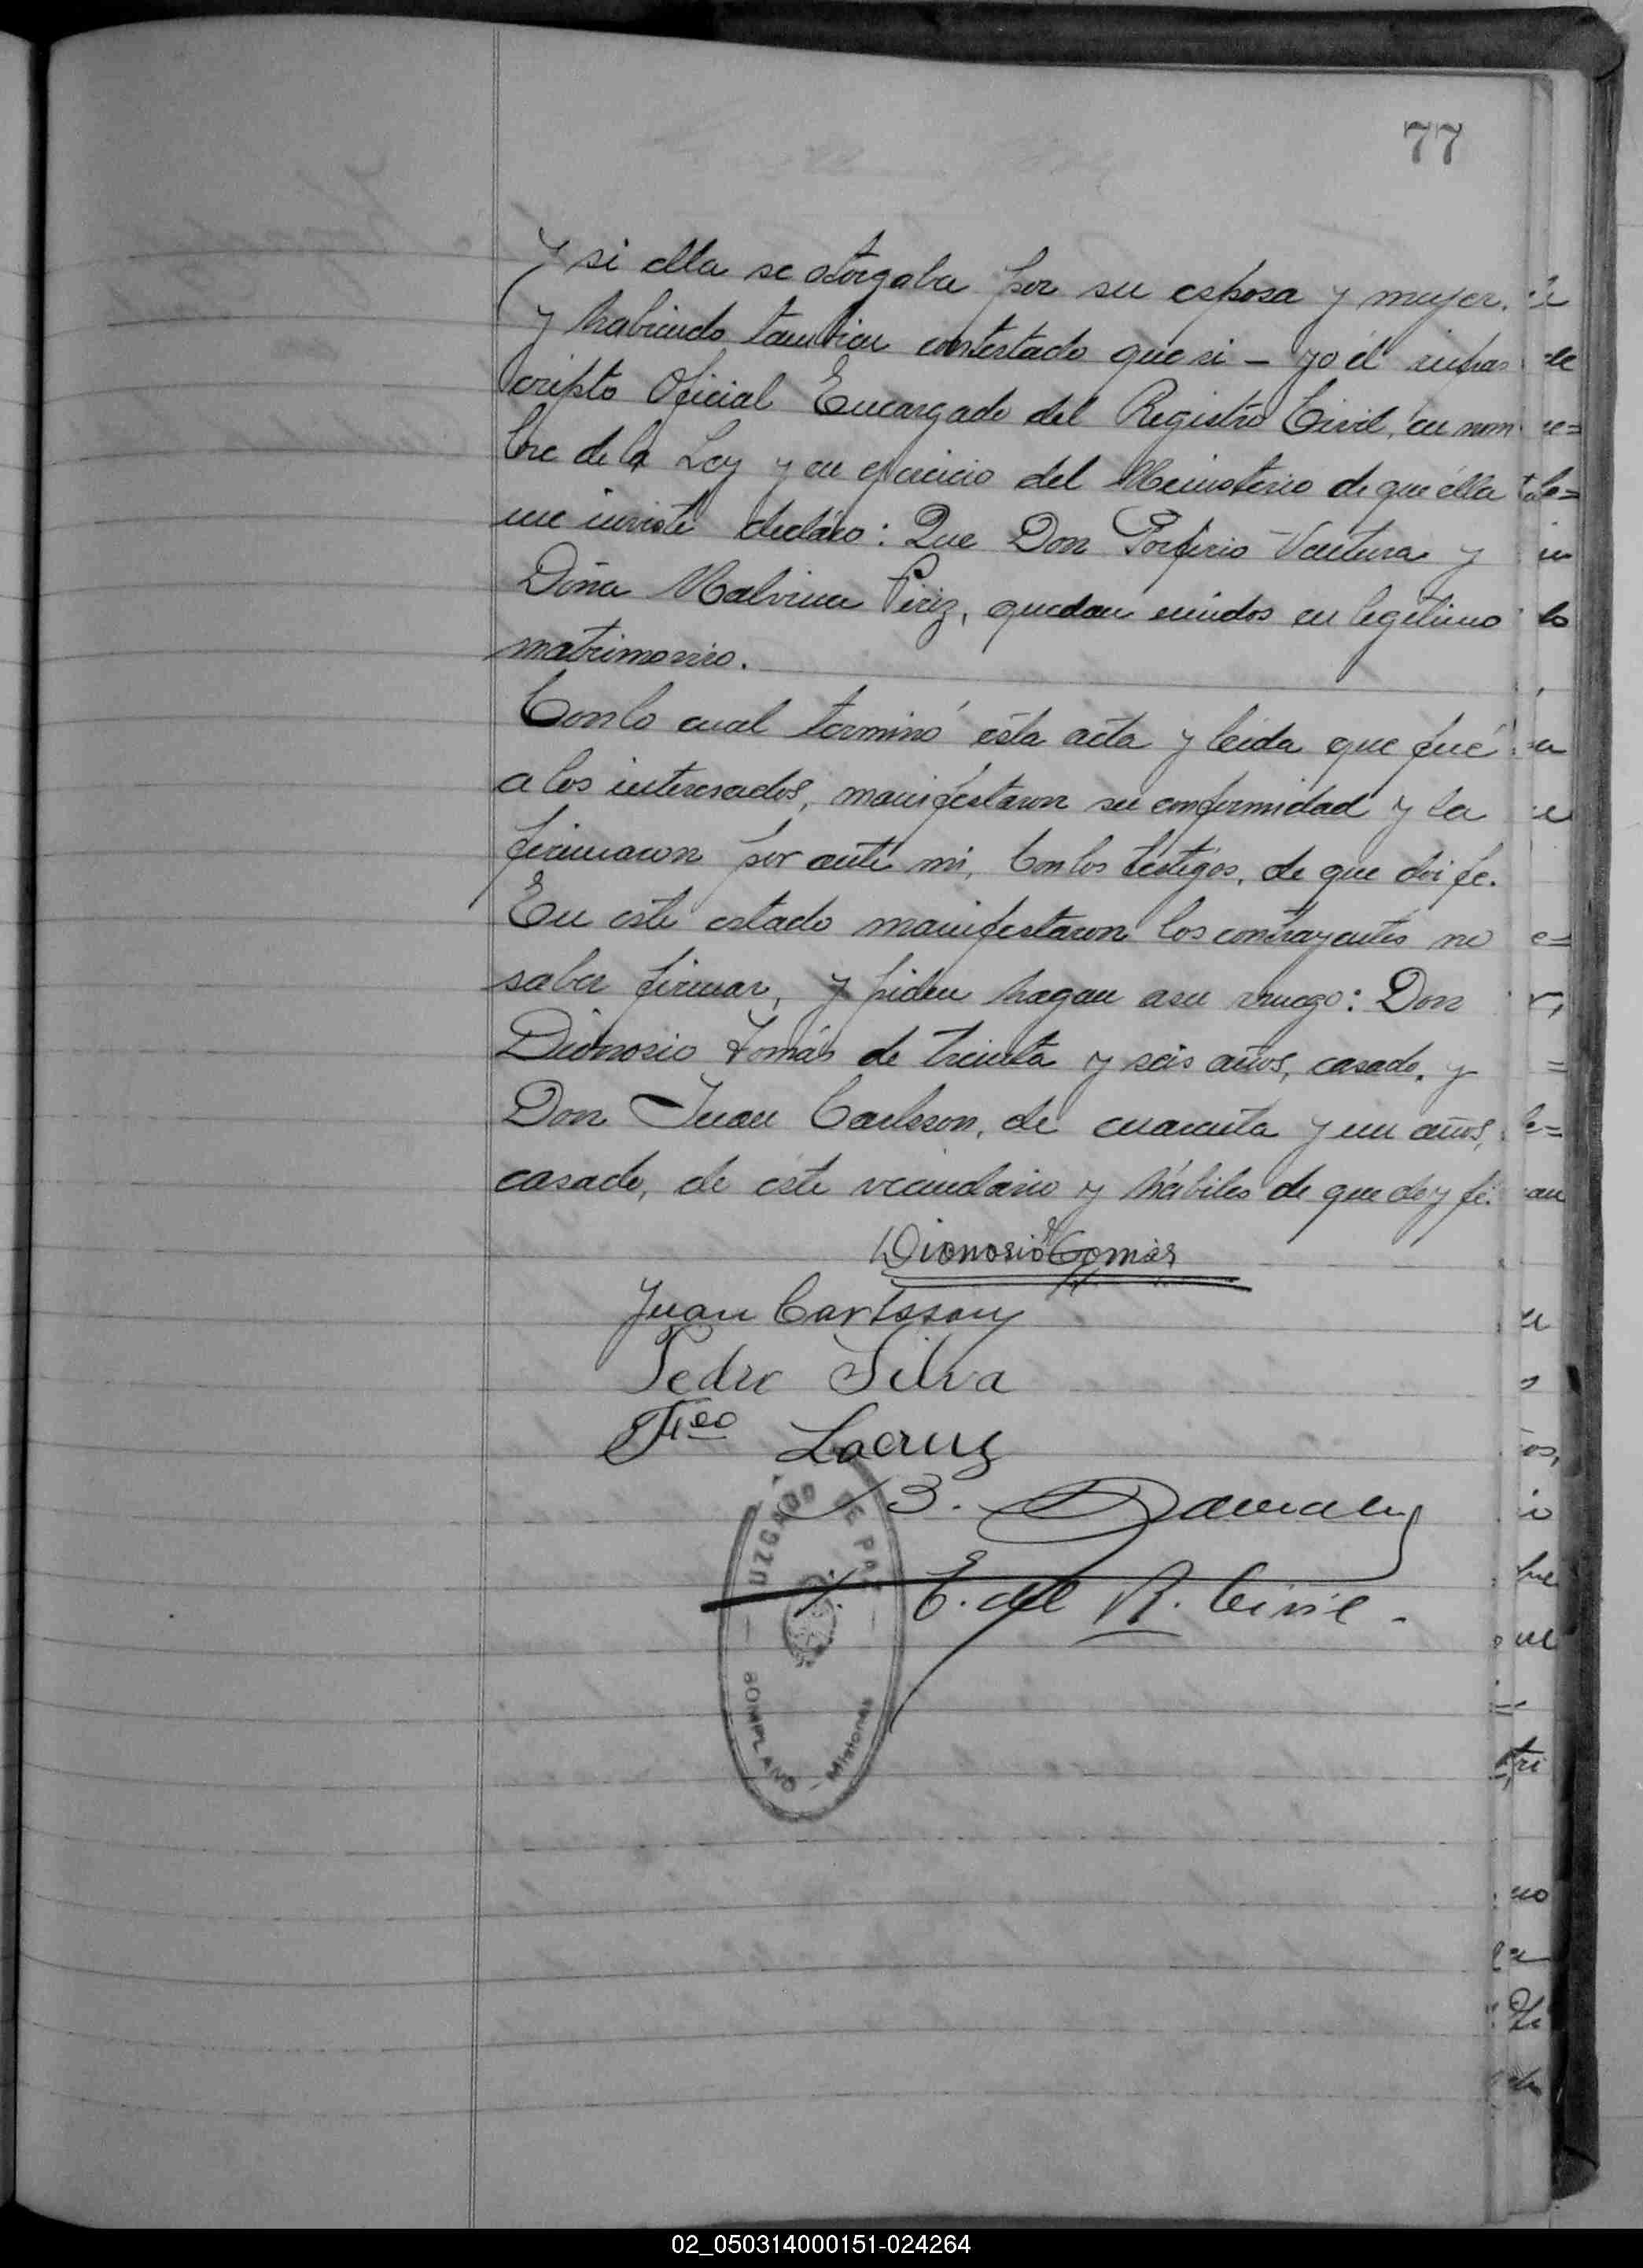 77
y si ella se otorgaba por su esposa y mujer.
y habiendo tambien contestado que si - yo él infras
cripto Oficial Encargado del Registro Civil, en nom
bre de la Ley y en ejercicio del Ministerio de que élla
me inviste declaro: Que Don Porfirio Ventura y
Doña Malvina Piriz, quedan unidos en legitimo
matrimonio.
Con lo cual terminó ésta acta y leida que fué
a los interesados, manifestaron su conformidad y la
firmaron por ante mi, con los testigos, de que doi fe.
En este estado manifestaron los contrayentes no
saber firmar, y piden hagan a su ruego: Don
Dionosio Tomás de treinta y seis años, casado, y
Don Juan Carlsson, de cuarenta y un años,
casado, de este vecindario y hábiles de que doy fé.
Dionosio
Juan Carlsson
Pedro Silva
Lacruz
B.
E. del R. Civil.
JUZGADO DE PAZ
BOMPLAND - Misiones
02_050314000151-024264